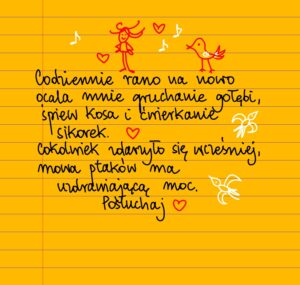 Codziennie rano na nowo
ocala mnie gruchanie gołębi,
śpiew kosa i ćwierkanie
sikorek.
Cokolwiek zdarzyło się wcześniej,
mowa ptaków ma
uzdrawiającą moc.
Posłuchaj